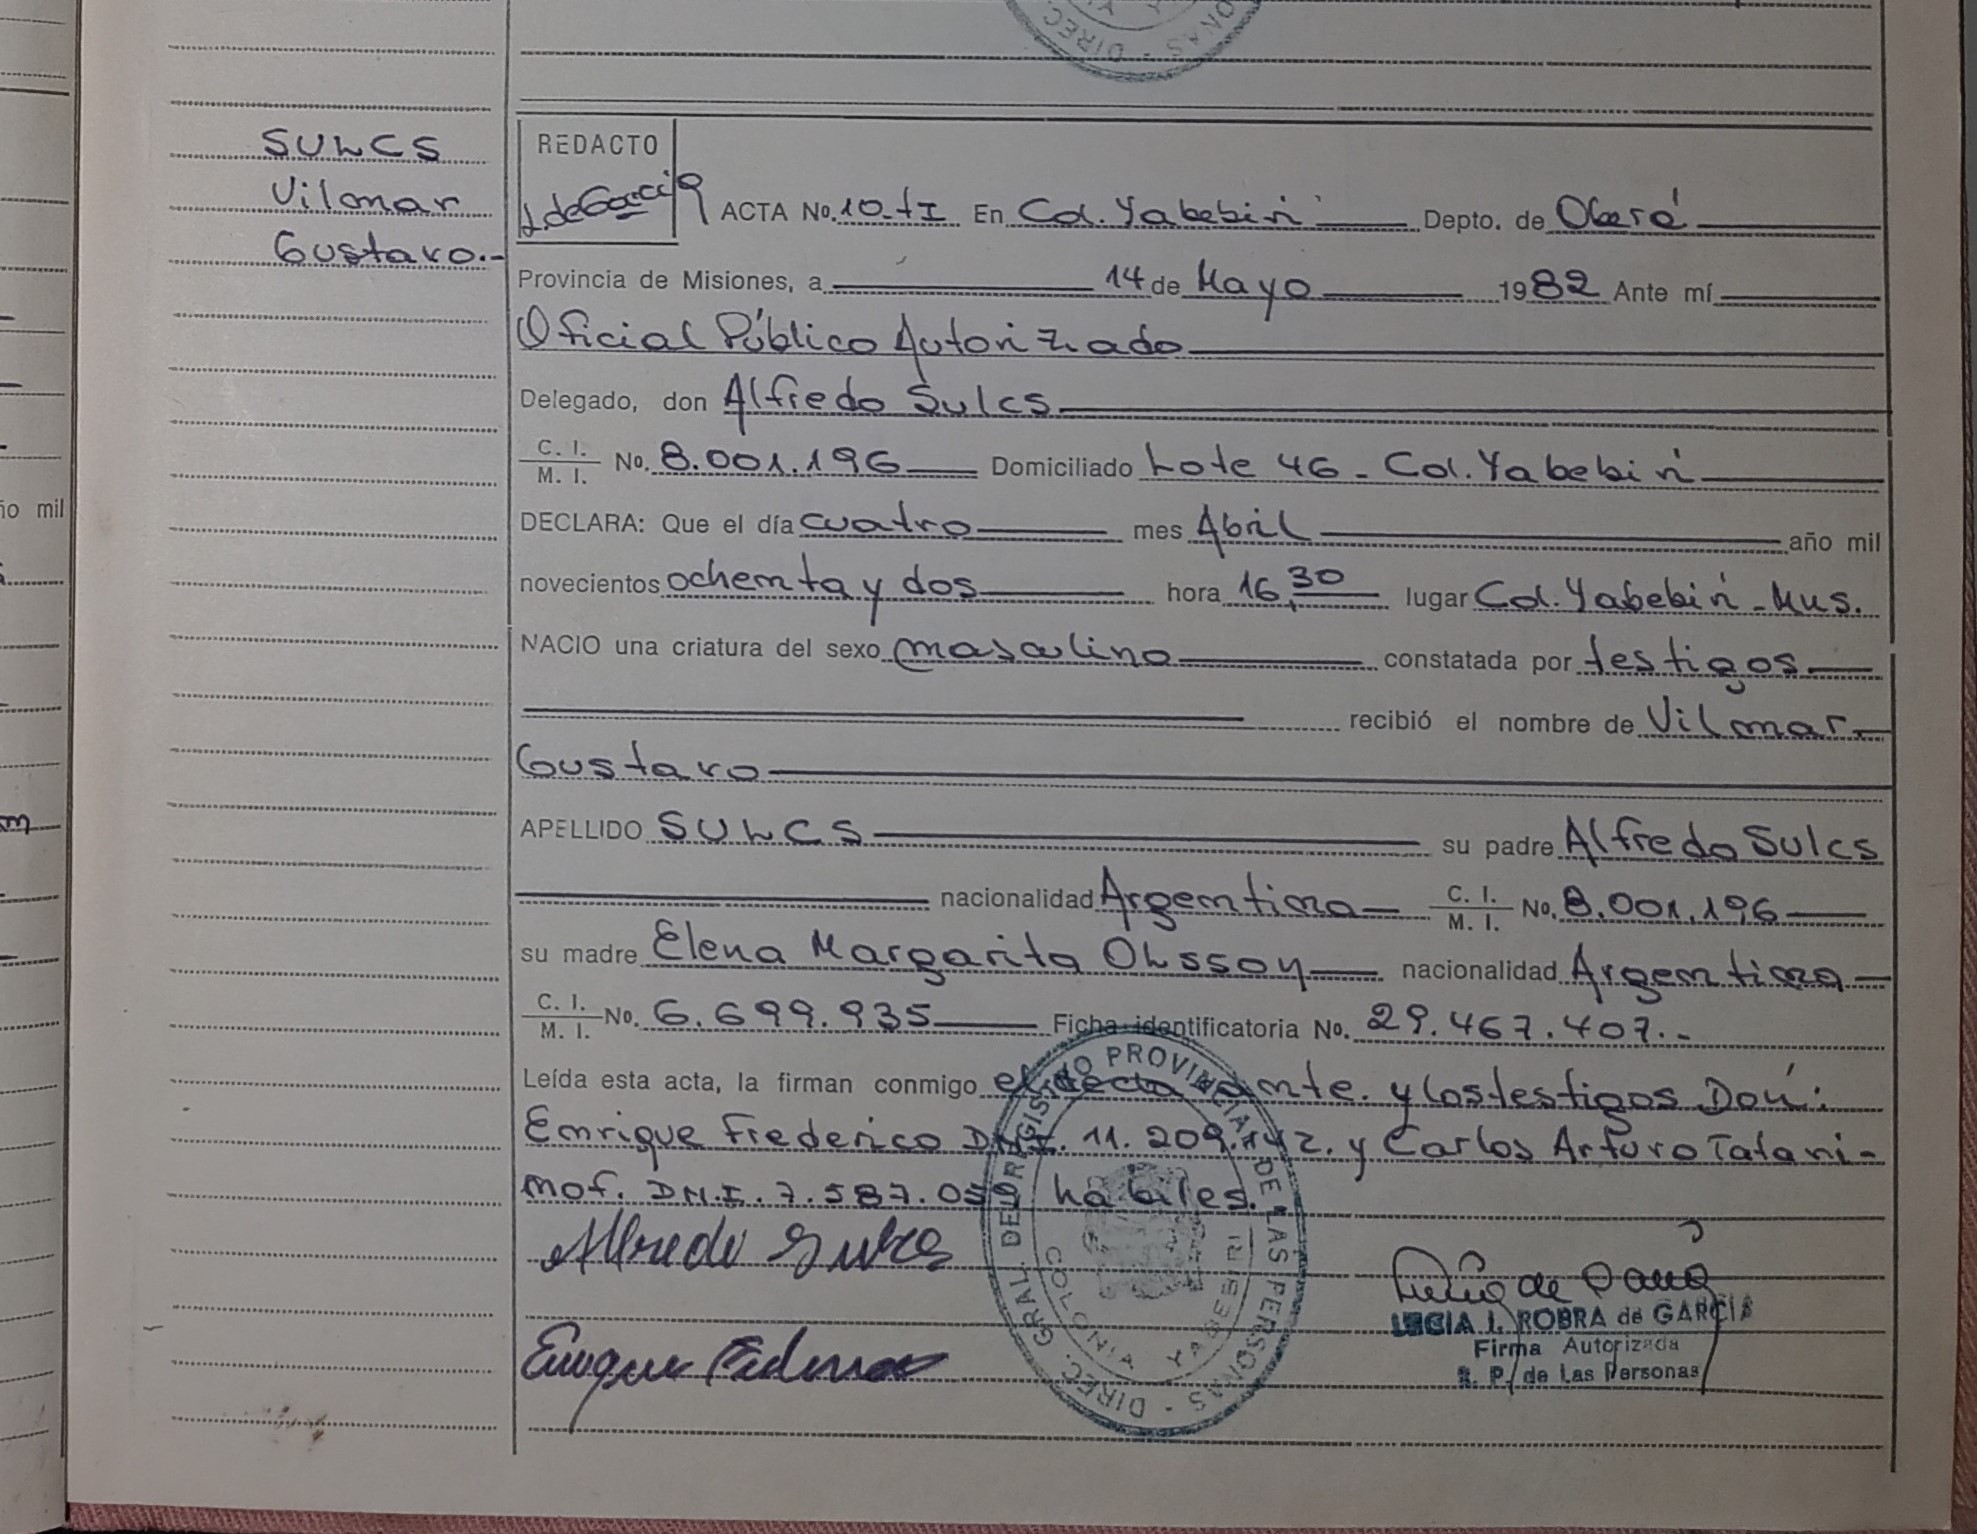 SULCS
Vilmar
Gustavo.-
REDACTO
L. de Garcia
ACTA No. 10-tI En Col. Yabebirí Depto. de Oberá
Provincia de Misiones, a 14 de Mayo 1982 Ante mí
Oficial Público Autorizado
Delegado, don Alfredo Sulcs
C. I.
M. I.
No. 8.001.196 Domiciliado Lote 46 - Col. Yabebirí
DECLARA: Que el día cuatro mes Abril año mil
novecientos ochenta y dos hora 16,30 lugar Col. Yabebirí - Mns.
NACIO una criatura del sexo masculino constatada por testigos
recibió el nombre de Vilmar
Gustavo
APELLIDO SULCS su padre Alfredo Sulcs
nacionalidad Argentina C. I. M. I. No. 8.001.196
su madre Elena Margarita Olsson nacionalidad Argentina
C. I. M. I. No. 6.699.935 Ficha identificatoria No. 29.467.407.-
Leída esta acta, la firman conmigo el declarante. y los testigos Don:
Enrique Frederico DNI. 11.209.142. y Carlos Arturo Tatari-
nof. DN.I. 7.587.059 hábiles.
Alfredo Sulcs
Enrique
DIREC. GRAL. DEL REGISTRO PROVINCIAL DE LAS PERSONAS -
COLONIA YABEBIRI
I. ROBRA de GARCIA
Firma Autorizada
R. P. de Las Personas
DIREC.
ONAS -
ño mil